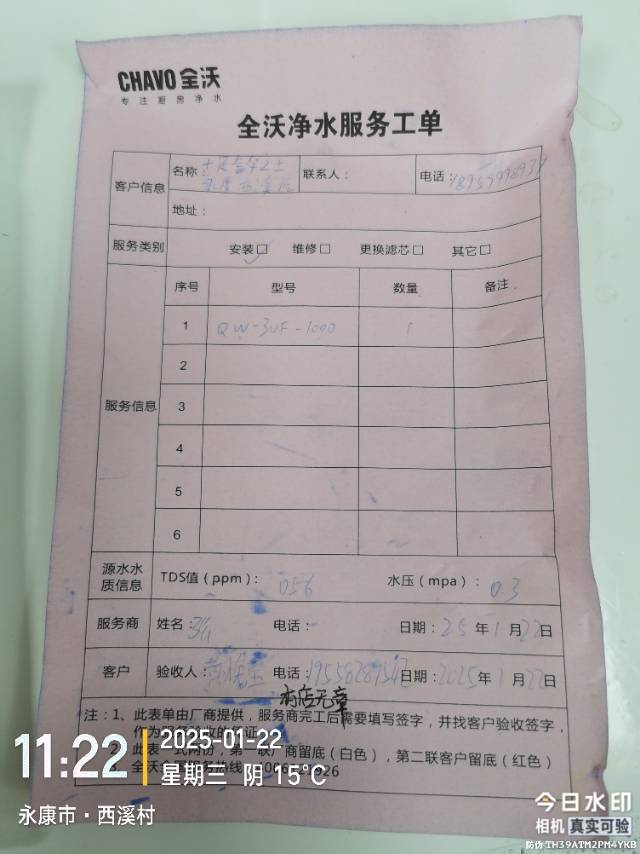 CHAVO 全沃
专注厨房净水
全沃净水服务工单
客户信息 名称： 联系人： 电话：
永康西溪店
地址：
服务类别 安装□✓ 维修□ 更换滤芯□ 其它□
服务信息 序号 型号 数量 备注
1 QW-3UF-1000 1
2
3
4
5
6
源水水质信息 TDS值（ppm）： 056 水压（mpa）： 0.3
服务商 姓名： 电话： 日期：25年1月22日
客户 验收人： 电话： 日期：2025年1月22日
本店无章
注：1、此表单由厂商提供，服务商完工后需要填写签字，并找客户验收签字，
作为服务
此表一式两份，第一联厂商留底（白色），第二联客户留底（红色）
全沃
11:22
2025-01-22
星期三 阴 15℃
永康市·西溪村
今日水印
相机 真实可验
防伪 TH39ATM2PM4YKB